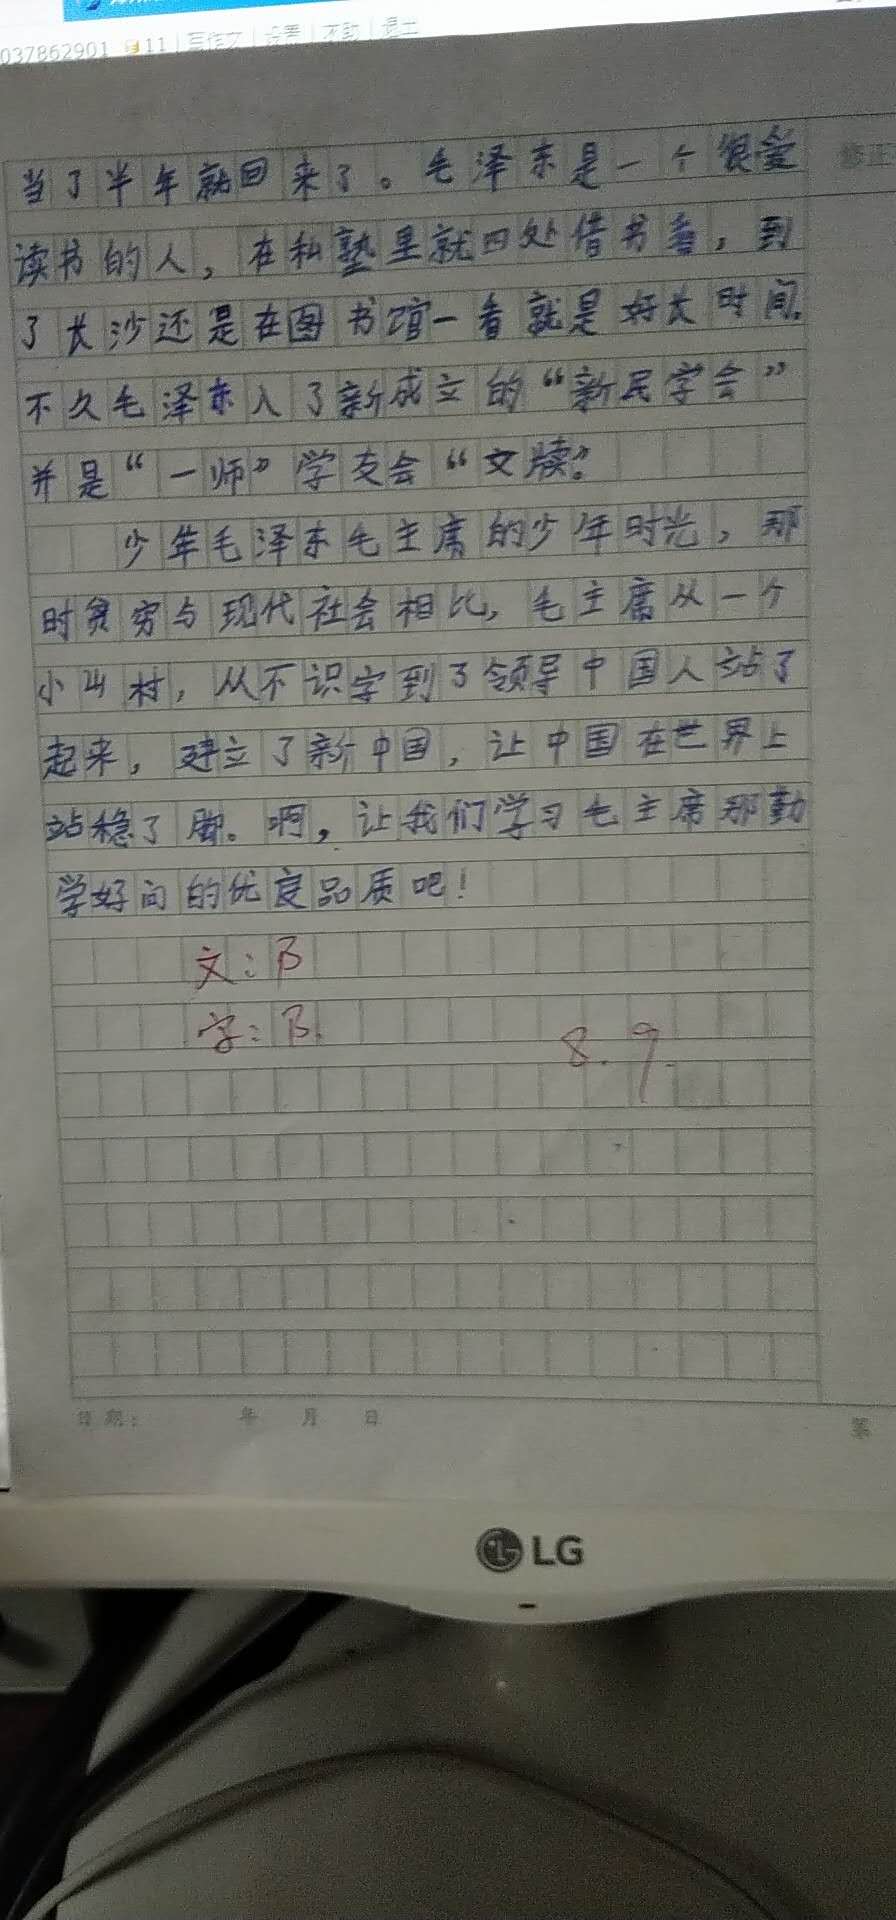 037862901 11 | 写作文 | 设置 | 不助 | 退土
修正
当了半年就回来了。毛泽东是一个很爱
读书的人，在私塾里就四处借书看，到
了长沙还是在图书馆一看就是好长时间。
不久毛泽东入了新成立的“新民学会”
并是“一师”学友会“文牍”。
少年毛泽东毛主席的少年时光，那
时贫穷与现代社会相比，毛主席从一个
小山村，从不识字到了领导中国人站了
起来，建立了新中国，让中国在世界上
站稳了脚。啊，让我们学习毛主席那勤
学好问的优良品质吧！
文：B
字：B.
8.9.
日期： 年 月 日
第
LG